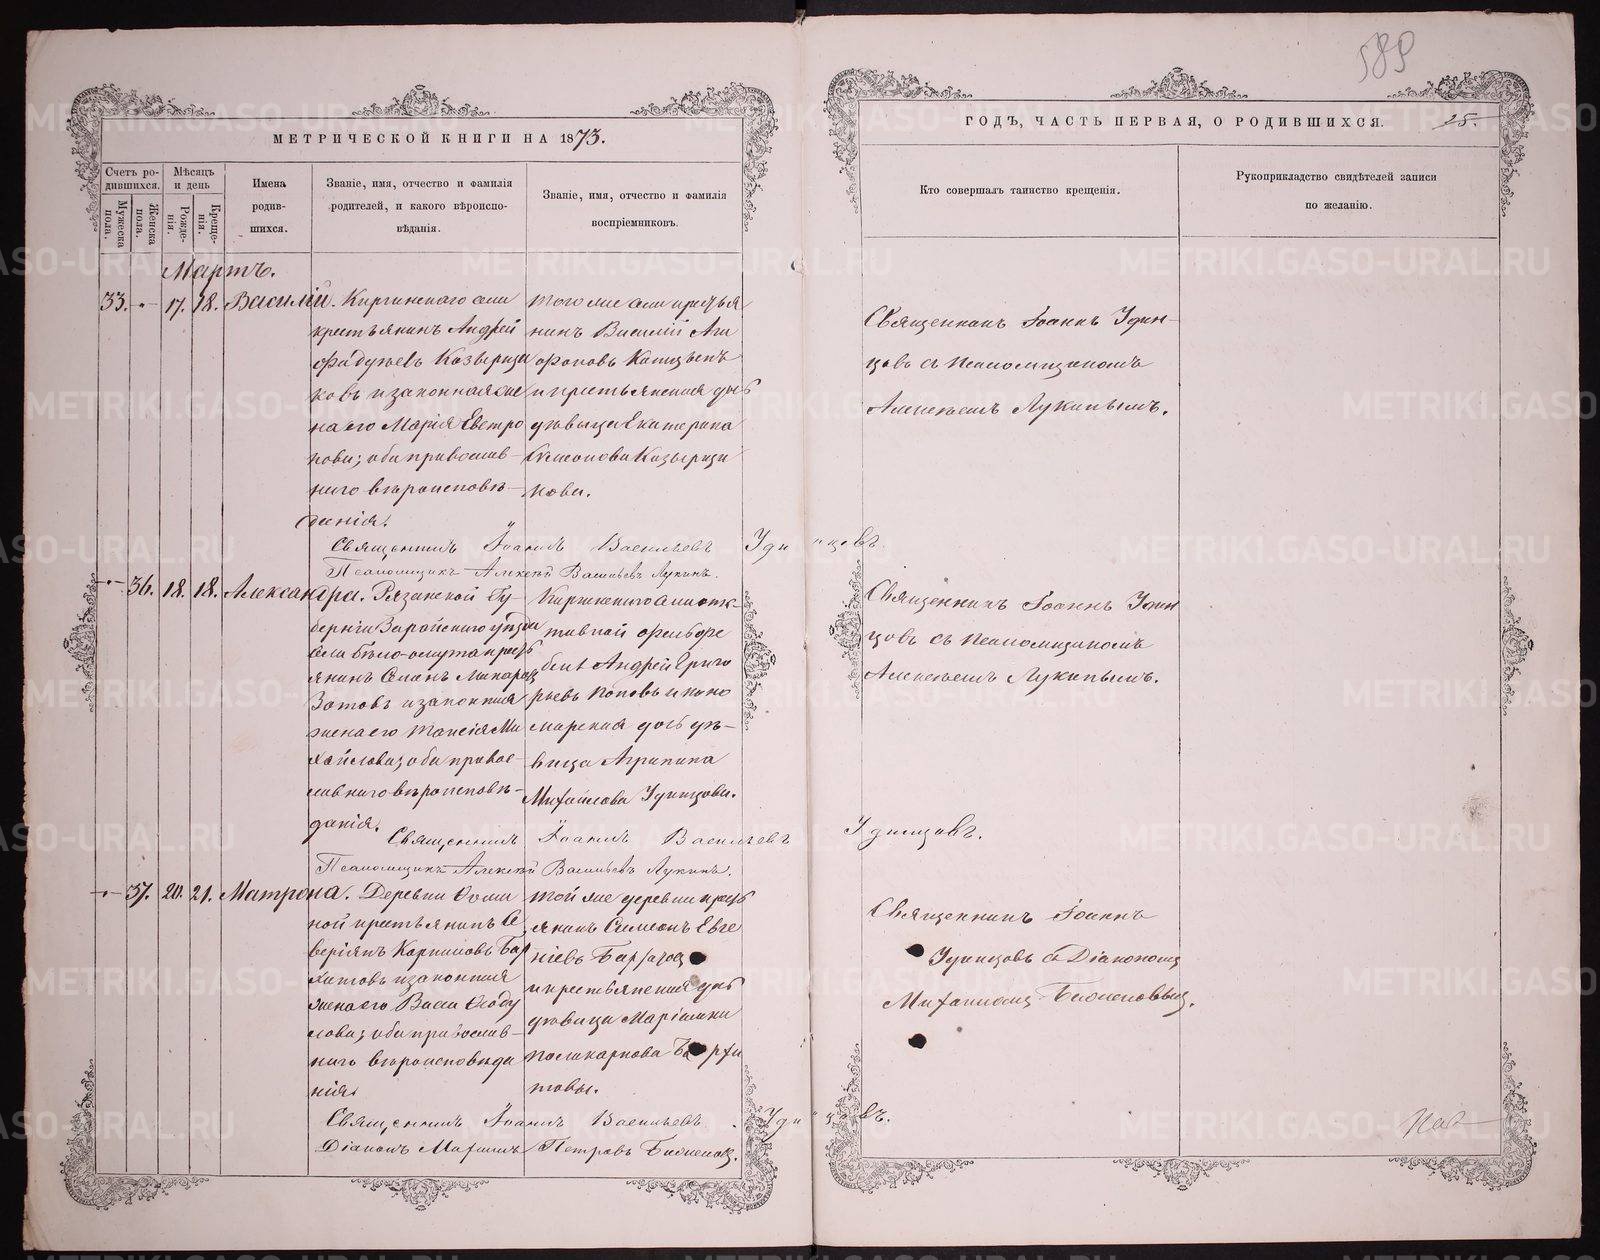 589
МЕТРИЧЕСКОЙ КНИГИ НА 1873.
Счетъ родившихся.
Мужеска пола.
Женска пола.
Мѣсяцъ и день
Рожденія.
Крещенія.
Имена
родив-
шихся.
Званіе, имя, отчество и фамилія
родителей, и какого вѣроиспо-
вѣданія.
Званіе, имя, отчество и фамилія
воспріемниковъ.
ГОДЪ, ЧАСТЬ ПЕРВАЯ, О РОДИВШИХСЯ. 25.
Кто совершалъ таинство крещенія.
Рукоприкладство свидѣтелей записи
по желанію.
Мартъ.
33. - 17. 18. Василій. Киргинскаго села
крестьянинъ Андрей
Козырчи
ковъ и законная же
на его Марія
нова; оба православ-
наго вѣроисповѣ-
данія.
того же села крестья
нинъ Василій Ага
фоновъ
и крестьянская дочь
дѣвица Екатерина
Симеонова Козырчи
кова.
Священникъ Іоаннъ Удин-
цовъ съ Псаломщикомъ
Алексѣемъ Лукинымъ.
Священникъ Іоаннъ Васильевъ Удинцовъ.
Псаломщикъ Алексѣй Васильевъ Лукинъ.
- 36. 18. 18. Александра. Рязанской Гу-
берніи Зарайскаго уѣзда
села Бѣло-омута кресть
янинъ Семенъ Макаровъ
Зотовъ и законная
жена его Таисія Ми
хайлова; оба право-
славнаго вѣроисповѣ-
данія.
Киргинскаго села
фельдше
Андрей Григо
рьевъ Поповъ и поно
марская дочь дѣ-
вица Агрипина
Михайлова Удинцова.
Священникъ Іоаннъ Удин
цовъ съ Псаломщикомъ
Алексѣемъ Лукинымъ.
Священникъ Іоаннъ Васильевъ Удинцовъ.
Псаломщикъ Алексѣй Васильевъ Лукинъ.
- 37. 20. 21. Матрона. Деревни Фоми
ной крестьянинъ Се
веріянъ Карпиловъ Бар
хатовъ и законная
жена его Васса Ѳеоду
лова; оба православ-
наго вѣроисповѣда
нія.
той же деревни кресть
янинъ Симеонъ Евге
ніевъ Бархатов
и крестьянская дочь
дѣвица Маріамна
Поликарпова Бархатова.
Священникъ Іоаннъ
Удинцовъ съ Діакономъ
Михаиломъ Бисеновымъ.
Священникъ Іоаннъ Васильевъ Удинцовъ.
Діаконъ Михаилъ Петровъ
METRIKI.GASO-URAL.RU